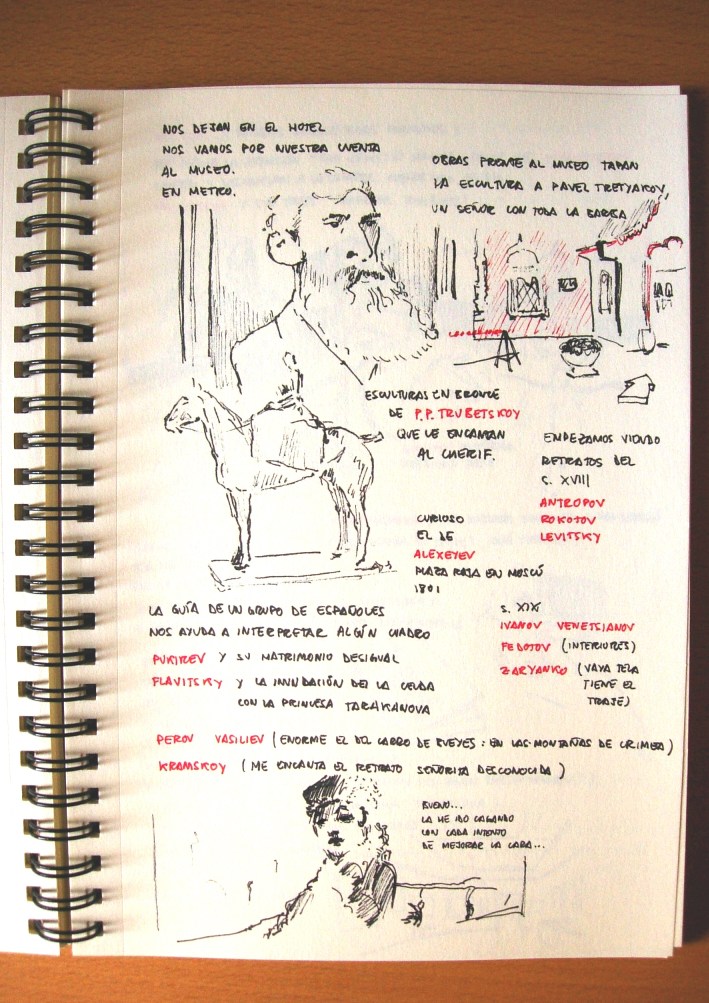 NOS DEJAN EN EL HOTEL
NOS VAMOS POR NUESTRA CUENTA
AL MUSEO.
EN METRO.
OBRAS FRENTE AL MUSEO TAPAN
LA ESCULTURA A PAVEL TRETYAKOV,
UN SEÑOR CON TODA LA BARBA
ESCULTURAS EN BRONCE
DE P.P. TRUBETSKOY
QUE LE ENCANTAN
AL CHERIF.
EMPEZAMOS VIENDO
RETRATOS DEL
S. XVIII
ANTROPOV
ROKOTOV
LEVITSKY
CURIOSO
EL DE
ALEXEYEV
PLAZA ROJA EN MOSCÚ
1801
S. XIX
IVANOV VENETSIANOV
FEDOTOV (INTERIORES)
ZARYANKO (VAYA TELA
TIENE EL
TRAJE)
LA GUÍA DE UN GRUPO DE ESPAÑOLES
NOS AYUDA A INTERPRETAR ALGÚN CUADRO
PUKIREV Y SU MATRIMONIO DESIGUAL
FLAVITSKY Y LA INUNDACIÓN DE LA CELDA
CON LA PRINCESA TARAKANOVA
PEROV VASILIEV (ENORME EL DEL CARRO DE BUEYES: EN LAS MONTAÑAS DE CRIMEA)
KRAMSKOY (ME ENCANTA EL RETRATO SEÑORITA DESCONOCIDA)
BUENO...
LA HE IDO CAGANDO
CON CADA INTENTO
DE MEJORAR LA CARA...